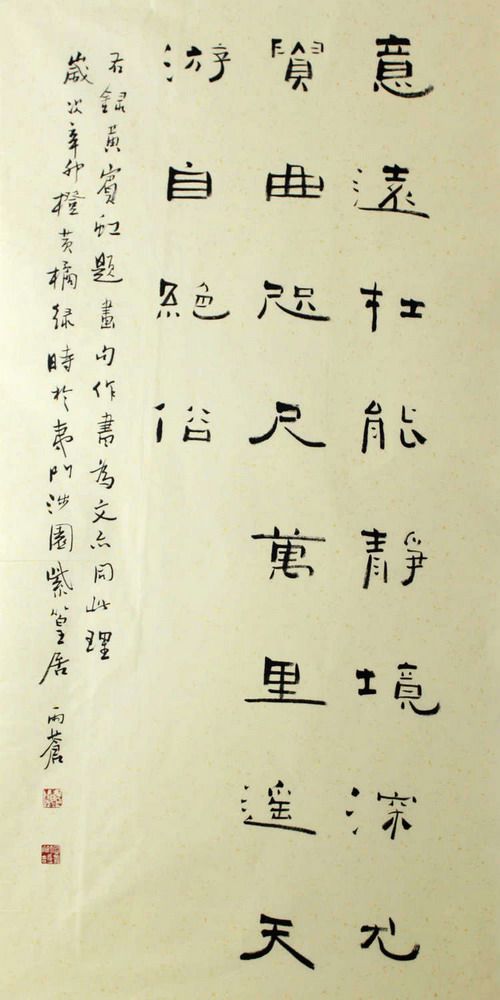 意遠在能靜境深尤
貴曲咫尺萬里遥天
游自絕俗
右録黄賓虹題畫句作書為文亦同此理
歲次辛卯橙黄橘緑時於夷門涉園紫篁居 雨蒼